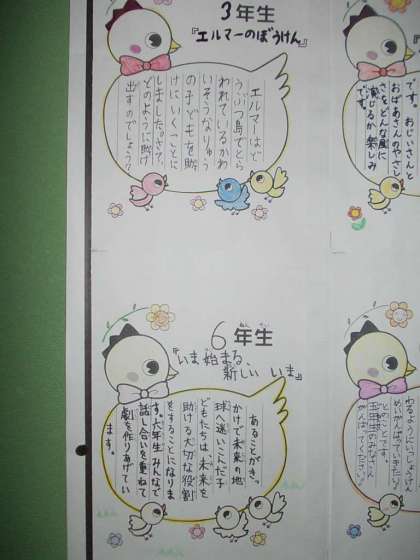 3年生
『エルマーのぼうけん』
エルマーはど
うぶつ島でとら
われているかわ
いそうなりゅう
の子どもを助
けにいくことに
しました。さて、
どのように助け
出すのでしょう!?
です。おじいさんと
おばあさんのやさし
さをどんな風に
感じるか楽しみ
です。
6年生
『いま始まる、
新しい いま』
あることがきっ
かけで未来の地
球に迷いこんだ子
どもたちは未来を
助ける大切な役割
をすることになりま
す。六年生みんなで
話し合いを重ねて
劇を作りあげてい
ます。